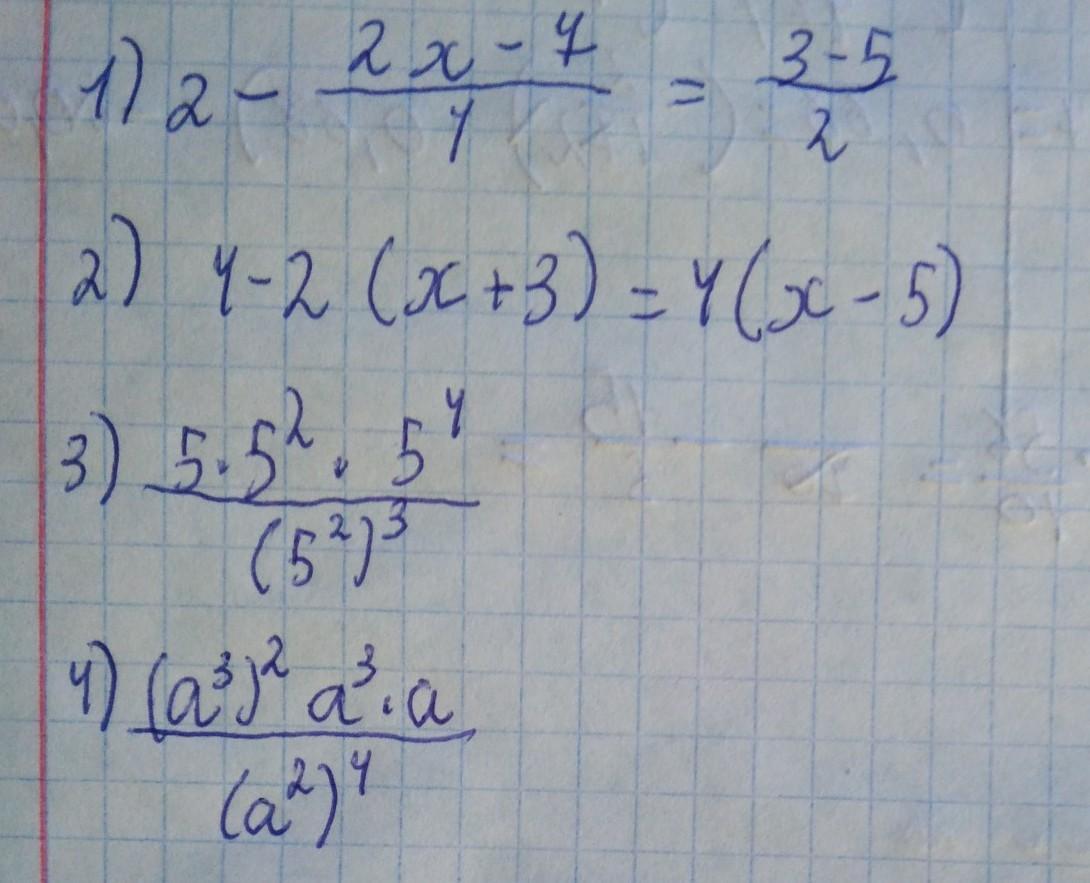 1) 2 - (2x - 7)/4 = (3-5)/2
2) 4-2 (x+3) = 4(x-5)
3) (5·5² · 5⁴)/(5²)³
4) ((a³)² a³·a)/(a²)⁴